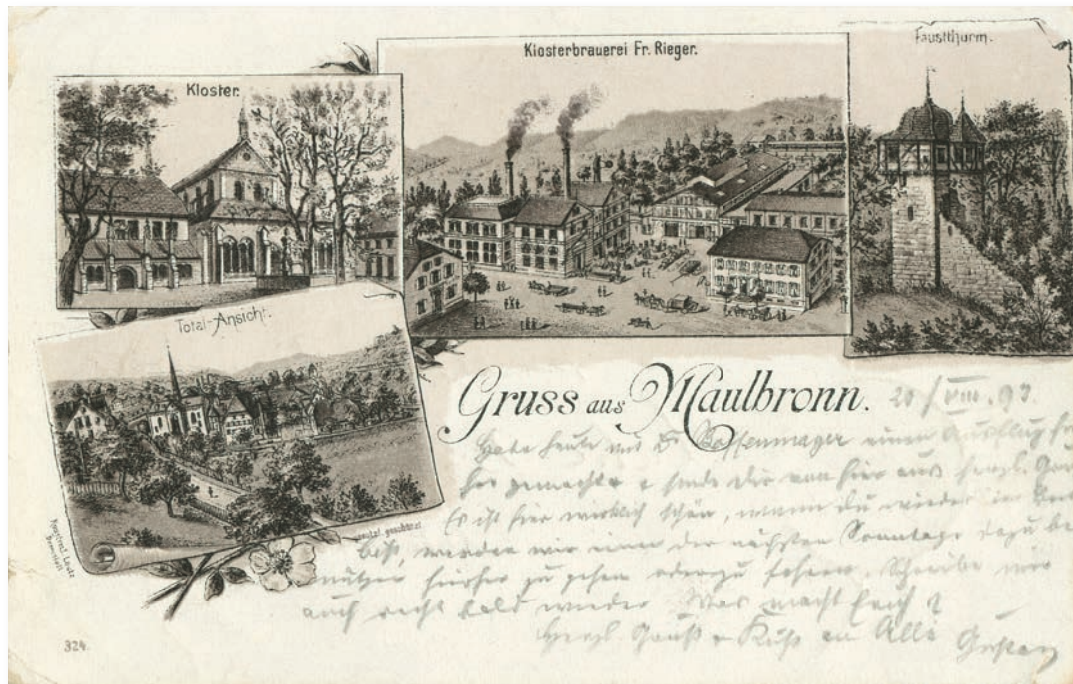 Kloster.
Klosterbrauerei Fr. Rieger.
Faustthurm.
Total-Ansicht.
Gruss aus Maulbronn. 20/VIII.
Habe heute mit Dr einen Ausflug hie
her gemacht & sende dir von hier aus herzl.
Es ist hier wirklich schön, wenn du wieder im
bist, werden wir einen der nächsten Sonntage dazu be
nützen hierher zu gehen oder zu fahren. Schreibe mir
auch recht bald wieder. Was macht Erich?
Herzl. Gruß & Kuß an Alle Gustav
gesetzl. geschützt
324